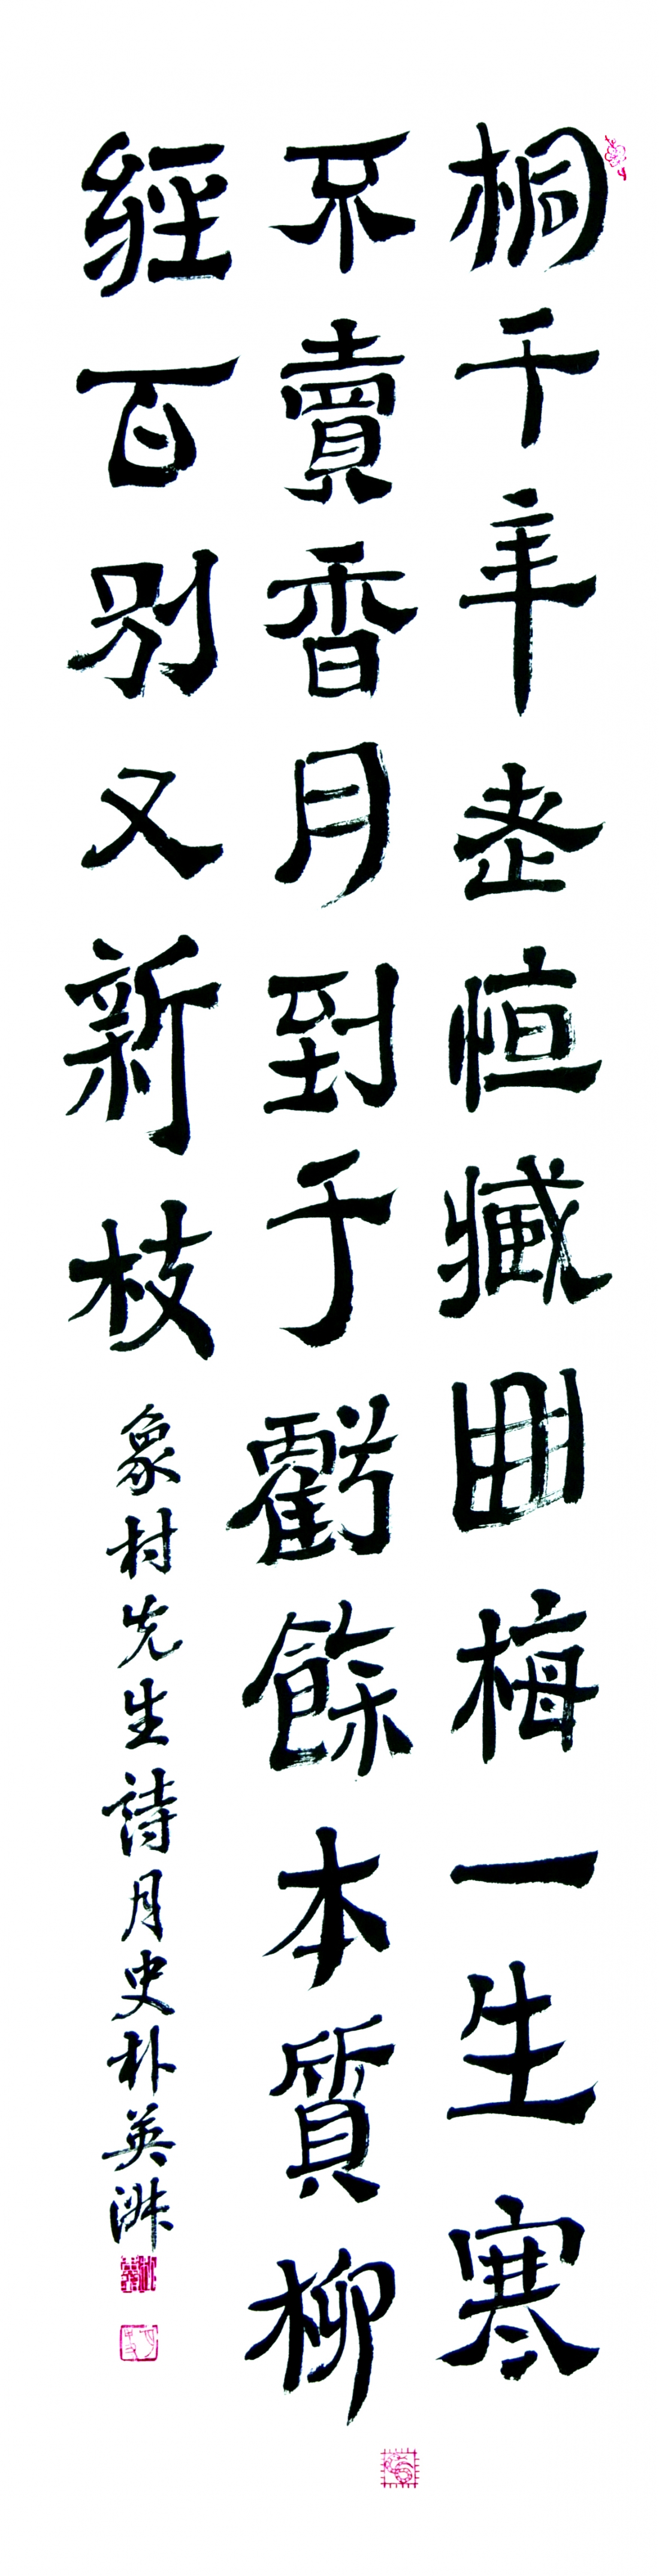 桐千年老恒藏曲梅一生寒
不賣香月到千虧餘本質柳
經百別又新枝 象村先生詩月史朴英淋